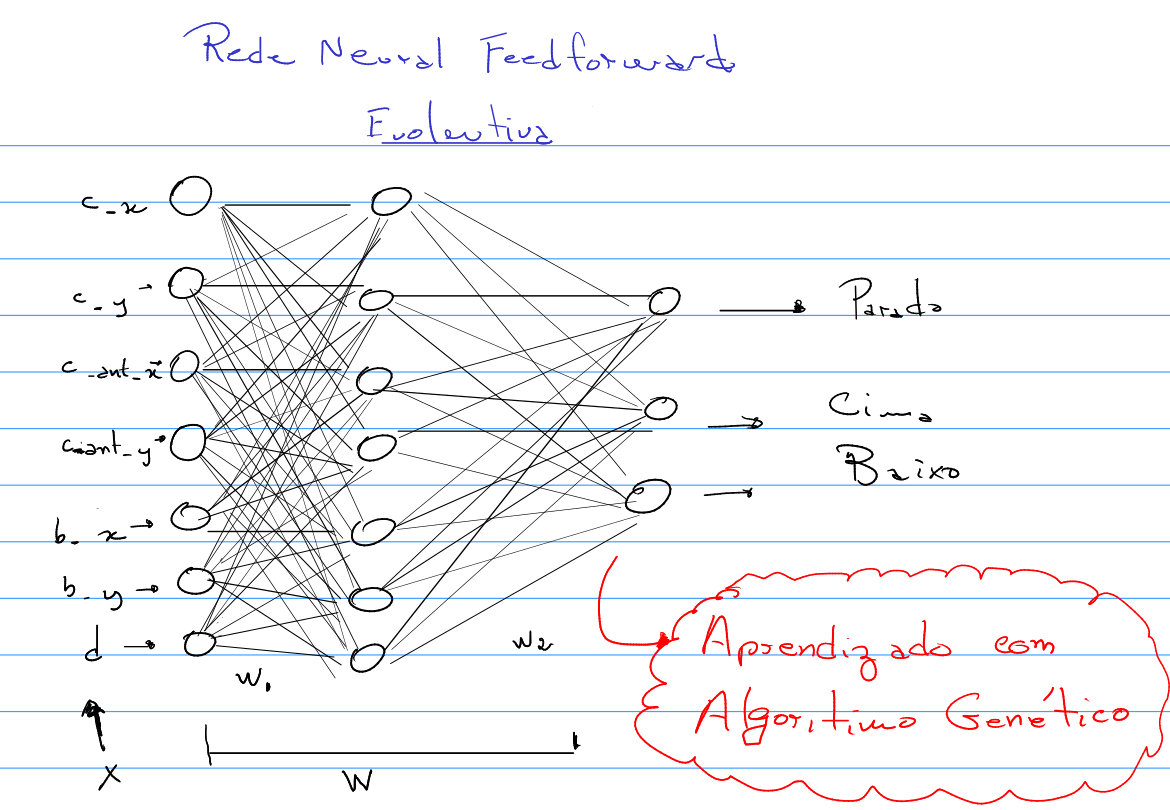 Rede Neural Feedforward
Evolutiva
c_x
c_y
c_ant_x
c_ant_y
b_x
b_y
d
X
W1
W2
W
Parado
Cima
Baixo
Aprendizado com
Algoritimo Genético